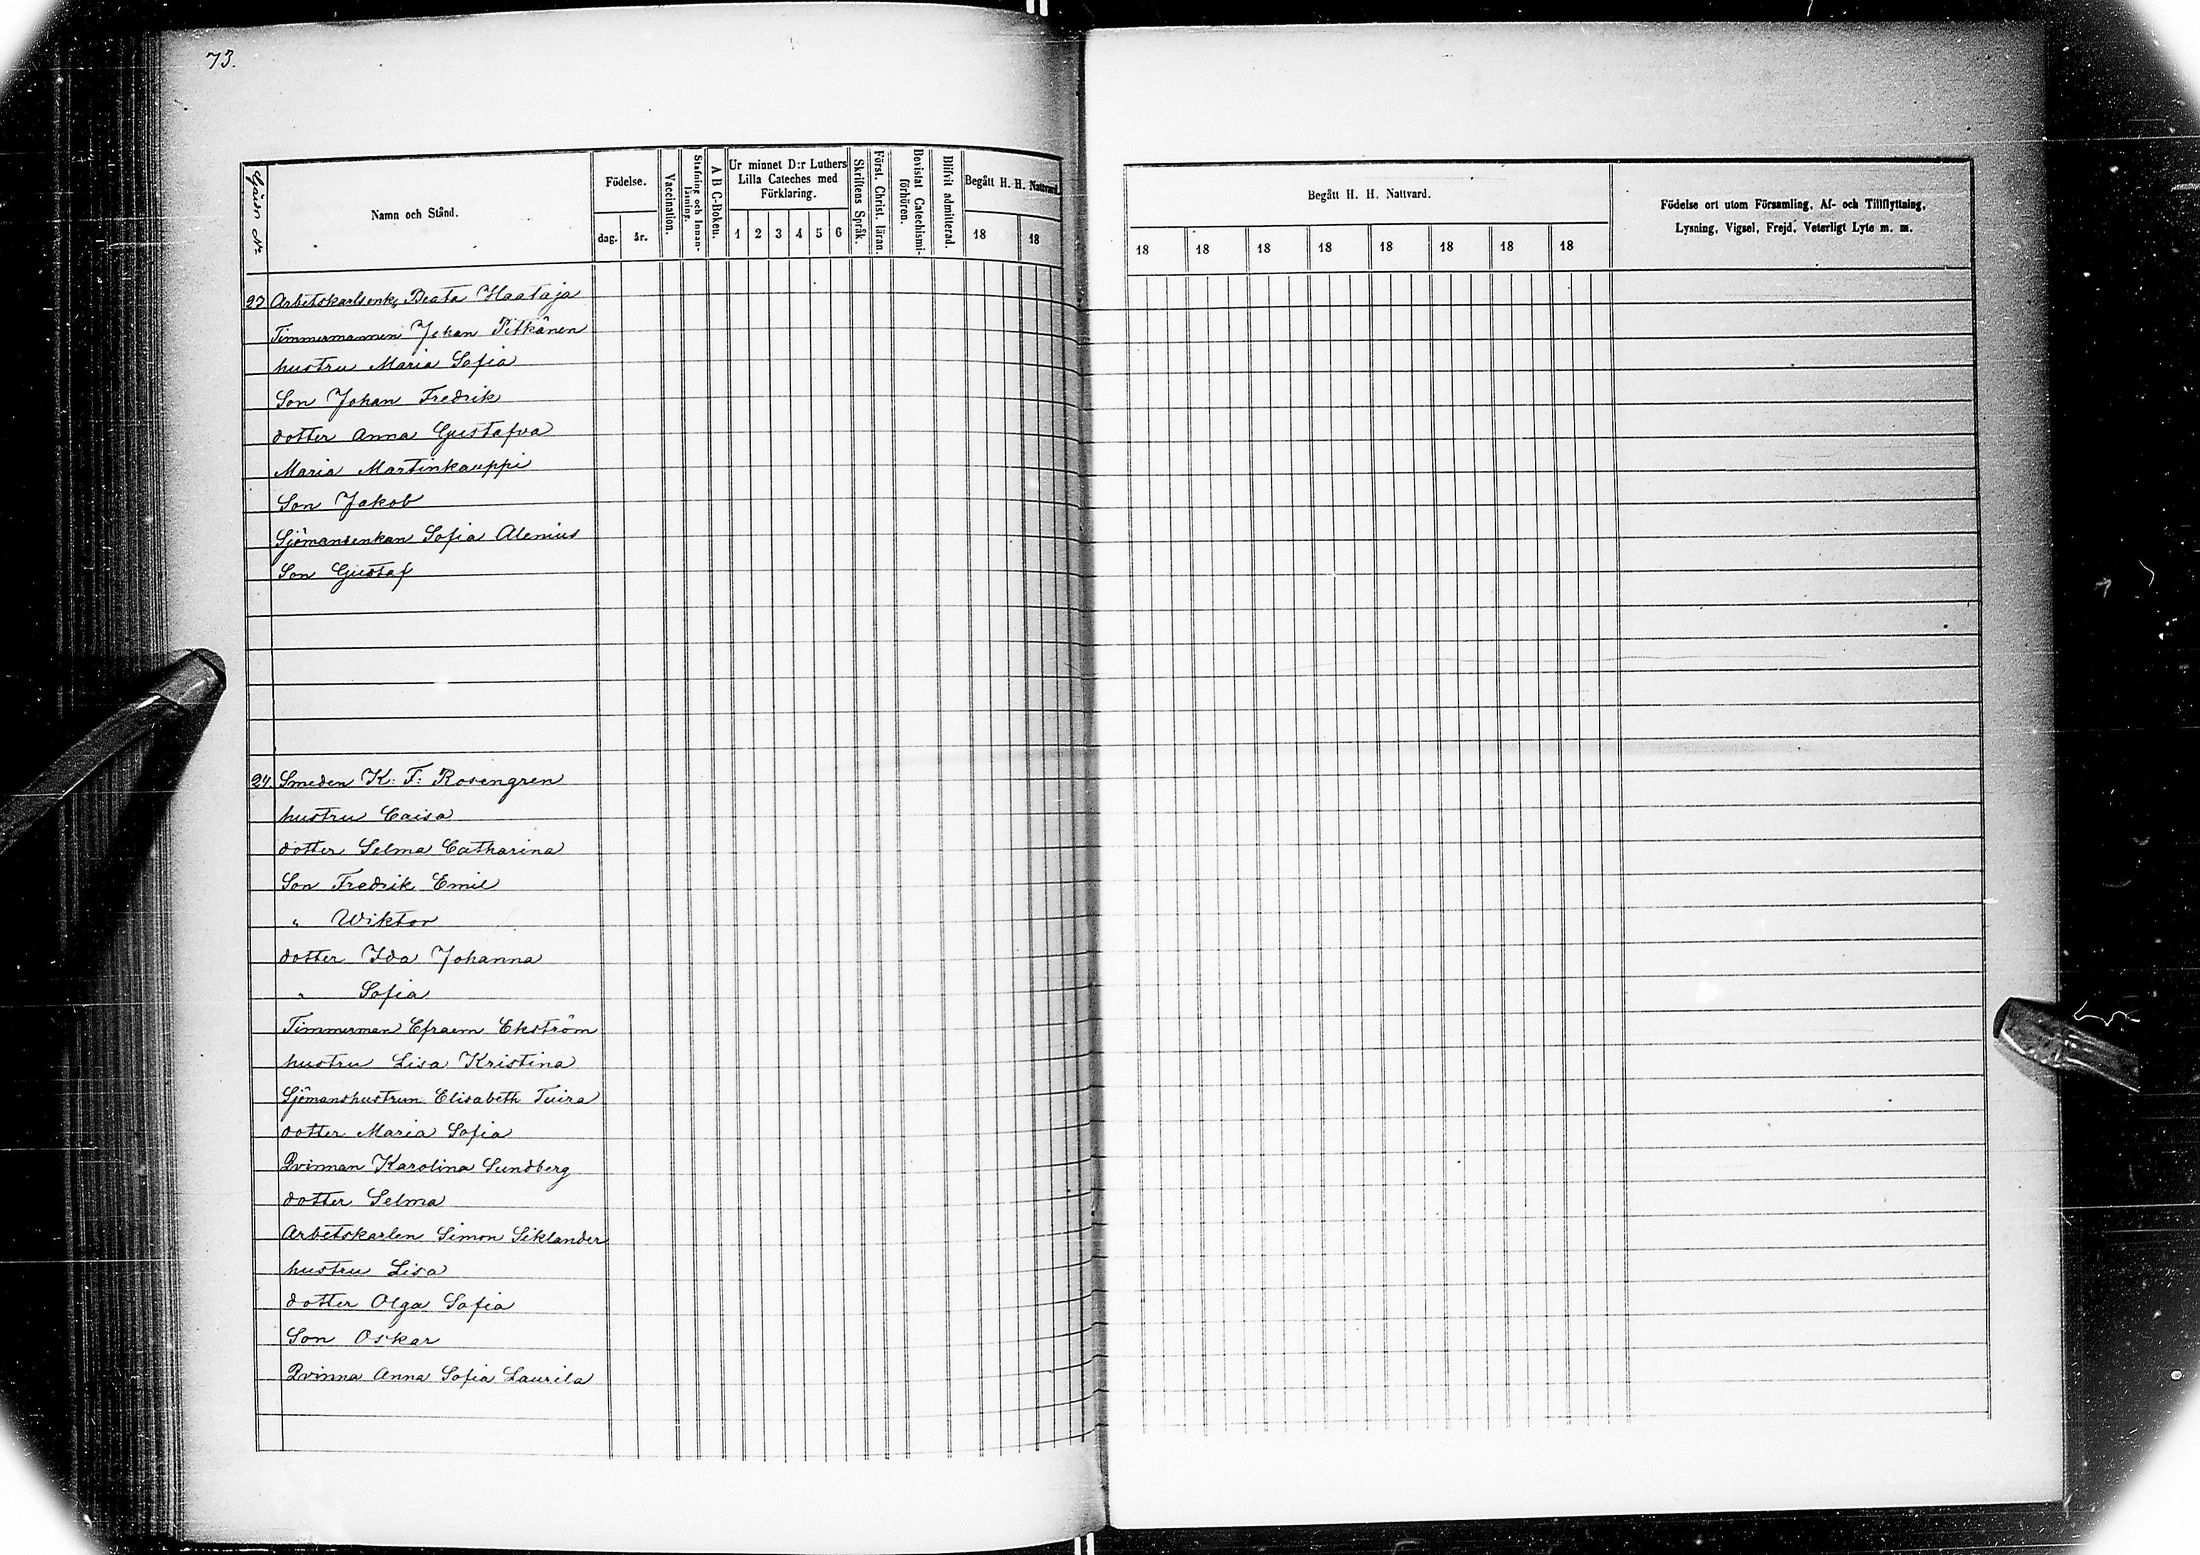 73.
Gårdn No
Namn och Stånd.
Födelse.
dag.
år.
Vaccination.
Stafning och Innan-
läsning.
A B C-Boken.
Ur minnet D:r Luthers
Lilla Cateches med
Förklaring.
1 2 3 4 5 6
Skriftens Språk.
Först. Christ. läran.
Bevistat Catechismi-
förhören.
Blifvit admitterad.
Begått H. H. Nattvard.
18 18
23 Arbetskarlsenk, Beata Haataja
Timmermannen Johan Pitkänen
hustru Maria Sofia
Son Johan Fredrik
dotter Anna Gustafva
Maria Martinkauppi
Son Jakob
Sjömansenkan Sofia Alenius
Son Gustaf
24. Smeden K. F. Rosengren
hustru Caisa
dotter Selma Catharina
Son Fredrik Emil
" Wiktor
dotter Ida Johanna
" Sofia
Timmerman Efraem Ekström
hustru Lisa Kristina
Sjömanshustrun Elisabeth Tuira
dotter Maria Sofia
Qvinnan Karolina Sundberg
dotter Selma
Arbetskarlen Simon Siklander
hustru Lisa
dotter Olga Sofia
Son Oskar
Qvinna Anna Sofia Laurila
Begått H. H. Nattvard.
18 18 18 18 18 18 18 18
Födelse ort utom Församling, Af- och Tillflyttning,
Lysning, Vigsel, Frejd, Veterligt Lyte m. m.